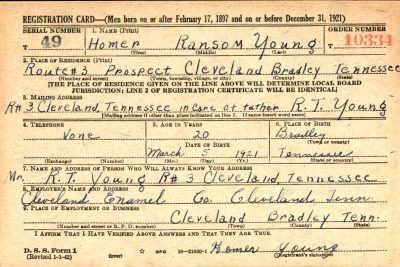 REGISTRATION CARD—(Men born on or after February 17, 1897 and on or before December 31, 1921)
SERIAL NUMBER
1. NAME (Print)
ORDER NUMBER
T 49
Homer Ransom Young
10334
(First) (Middle) (Last)
2. PLACE OF RESIDENCE (Print)
Route #3 Prospect Cleveland Bradley Tennessee
(Number and street) (Town, township, village, or city) (County) (State)
[THE PLACE OF RESIDENCE GIVEN ON THE LINE ABOVE WILL DETERMINE LOCAL BOARD
JURISDICTION; LINE 2 OF REGISTRATION CERTIFICATE WILL BE IDENTICAL]
3. MAILING ADDRESS
R#3 Cleveland, Tennessee in Care of father R.T. Young
[Mailing address if other than place indicated on line 2. If same insert word same]
4. TELEPHONE
5. AGE IN YEARS
6. PLACE OF BIRTH
None
20
Bradley
DATE OF BIRTH
(Town or county)
March 5 1921
Tennessee
(Exchange) (Number) (Mo.) (Day) (Yr.) (State or country)
7. NAME AND ADDRESS OF PERSON WHO WILL ALWAYS KNOW YOUR ADDRESS
Mr. R.T. Young R#3 Cleveland, Tennessee
8. EMPLOYER'S NAME AND ADDRESS
Cleveland Enamel Co. Cleveland Tenn.
9. PLACE OF EMPLOYMENT OR BUSINESS
Cleveland Bradley Tenn.
(Number and street or R. F. D. number) (Town) (County) (State)
I AFFIRM THAT I HAVE VERIFIED ABOVE ANSWERS AND THAT THEY ARE TRUE.
D. S. S. Form 1
(Revised 1-1-42)
(over)
GPO
16—21630-1
Homer Young
(Registrant's signature)